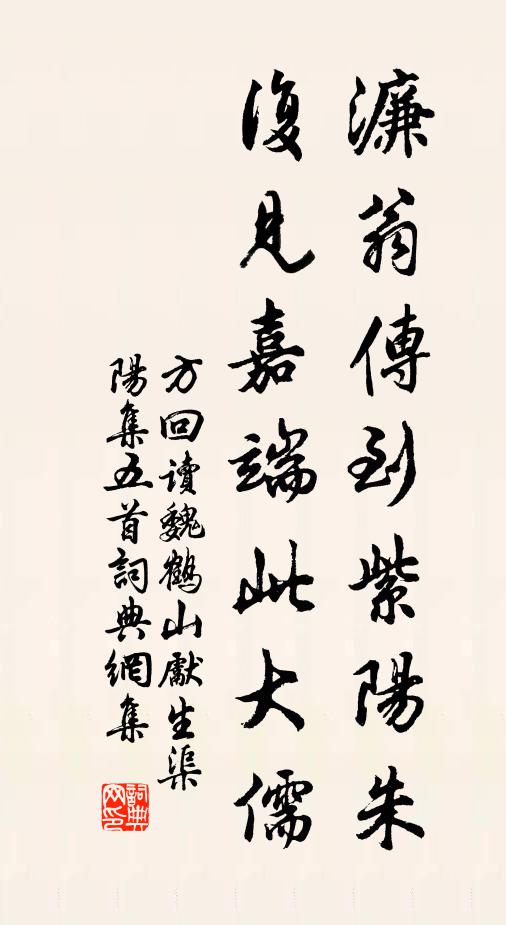 濂翁傳到紫陽朱
復見嘉端此大儒
方回读魏鹤山獻生渠
陽集五首詞典網集
詞典网印